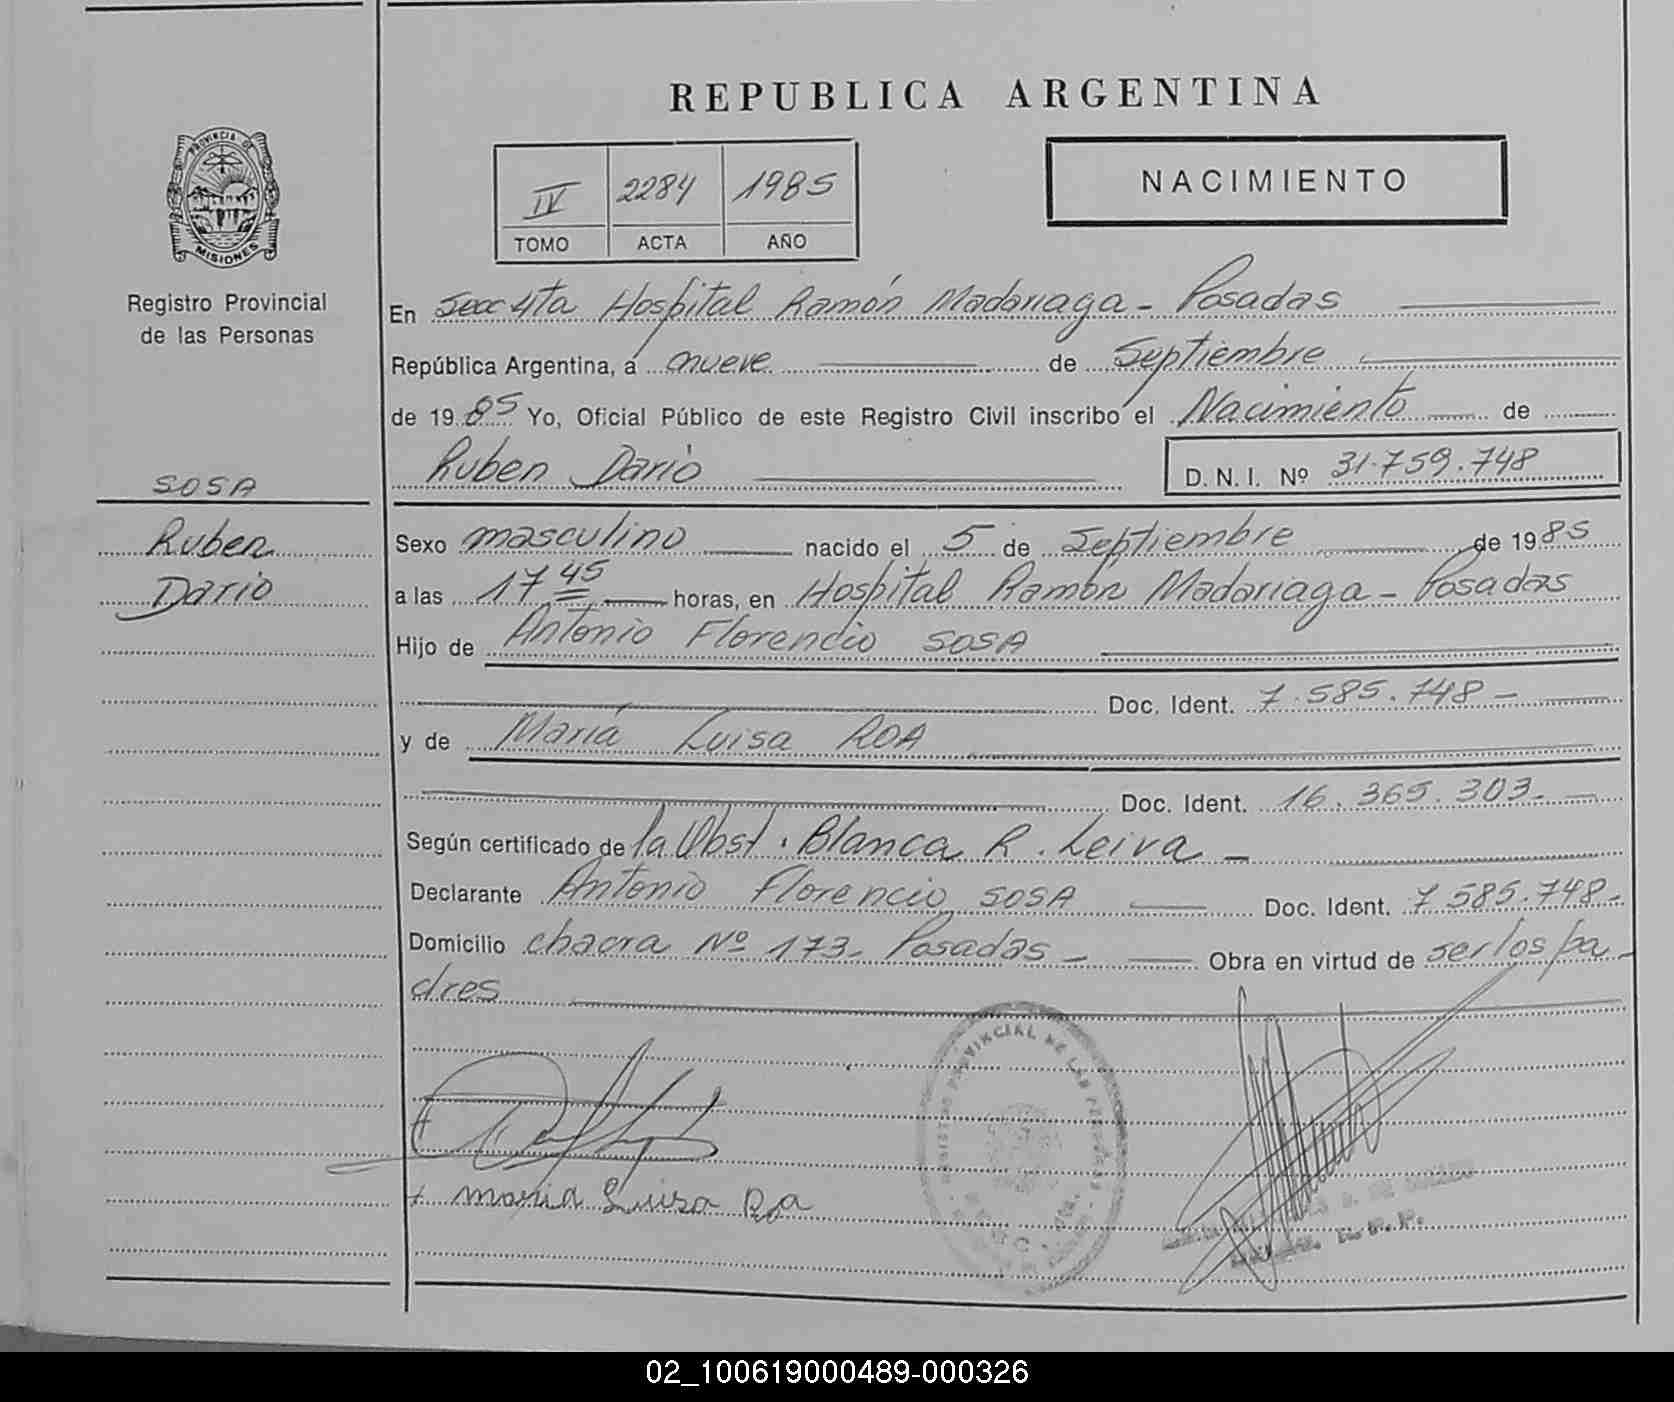 REPUBLICA ARGENTINA
PROVINCIA DE MISIONES
Registro Provincial
de las Personas
IV 2284 1985
TOMO ACTA AÑO
NACIMIENTO
En Secc 4ta Hospital Ramón Madariaga - Posadas
República Argentina, a nueve de Septiembre
de 1985 Yo, Oficial Público de este Registro Civil inscribo el Nacimiento de
Ruben Dario D. N. I. Nº 31.759.748
SOSA
Ruben
Dario
Sexo masculino nacido el 5 de Septiembre de 1985
a las 17 45 horas, en Hospital Ramón Madariaga - Posadas
Hijo de Antonio Florencio SOSA
Doc. Ident. 7.585.748-
y de María Luisa ROA
Doc. Ident. 16.365.303.-
Según certificado de la Obst. Blanca R. Leiva -
Declarante Antonio Florencio SOSA Doc. Ident. 7.585.748-
Domicilio chacra Nº 173- Posadas - Obra en virtud de ser los pa-
dres
REGISTRO PROVINCIAL DE LAS PERSONAS
maria Luisa Roa
02_100619000489-000326